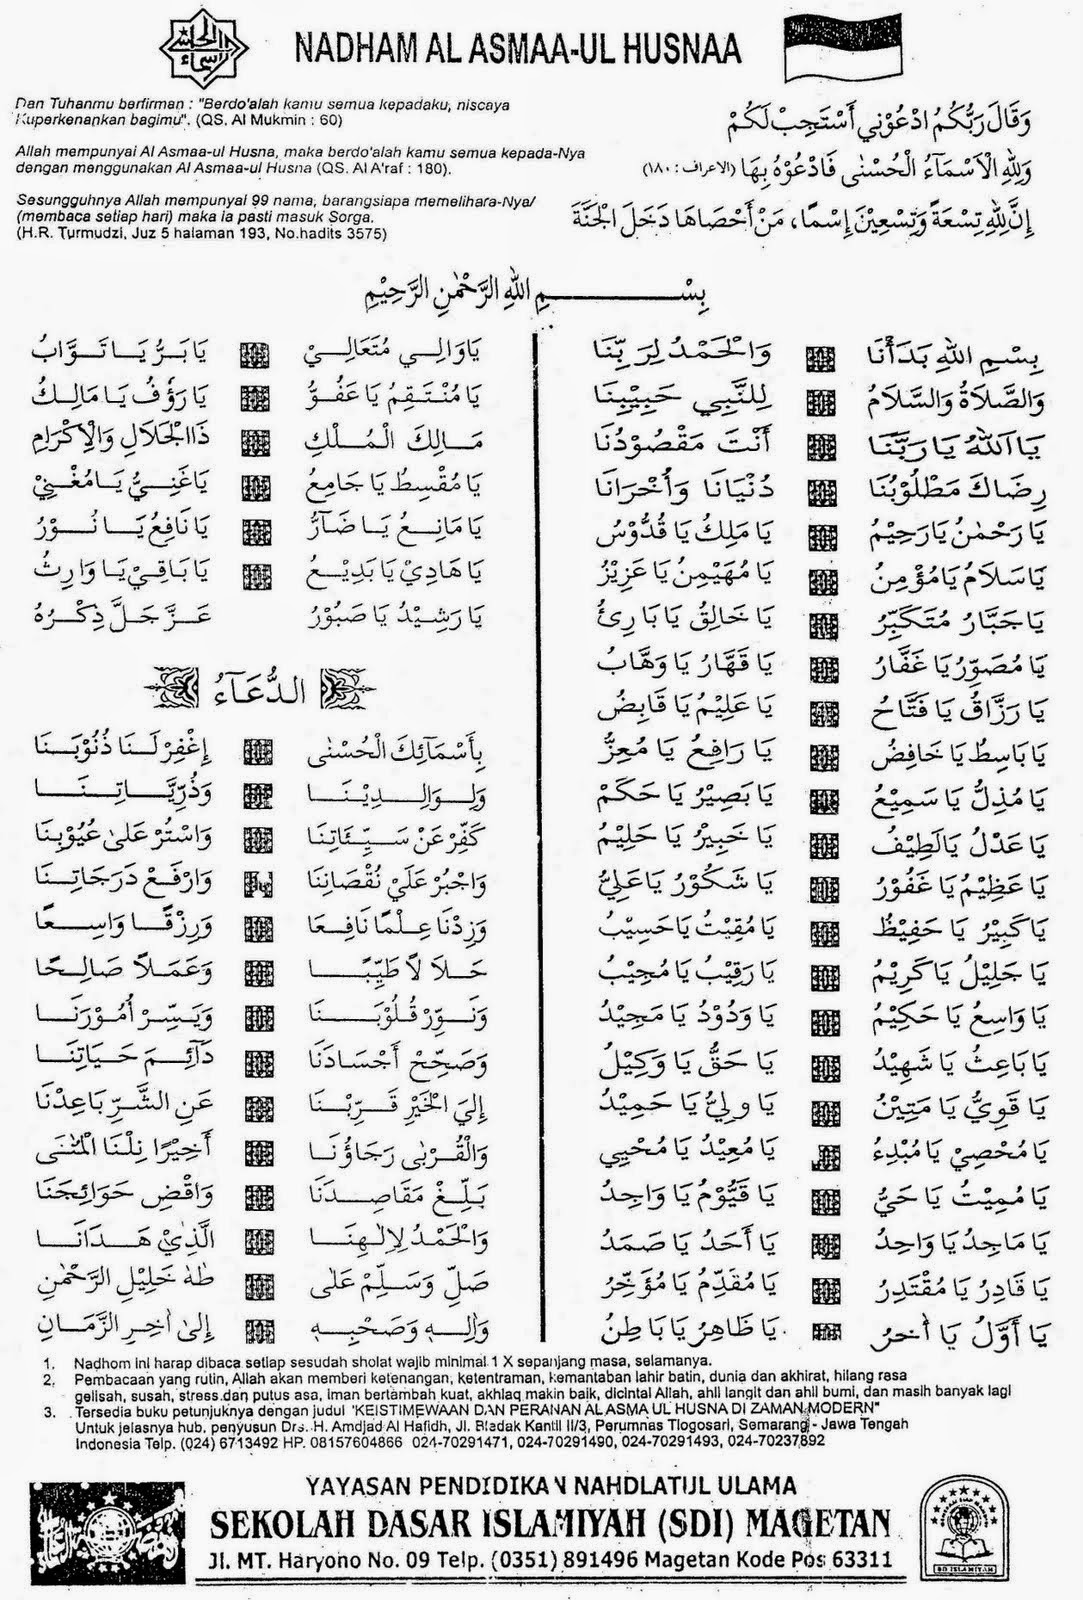 NADHAM AL ASMAA-UL HUSNAA
Dan Tuhanmu berfirman : "Berdo'alah kamu semua kepadaku, niscaya
Kuperkenankan bagimu". (QS. Al Mukmin : 60)
وَقَالَ رَبُّكُمُ ادْعُوْنِي أَسْتَجِبْ لَكُمْ
Allah mempunyai Al Asmaa-ul Husna, maka berdo'alah kamu semua kepada-Nya
dengan menggunakan Al Asmaa-ul Husna (QS. Al A'raf : 180).
وَلِلّٰهِ الْاَسْمَآءُ الْحُسْنٰى فَادْعُوْهُ بِهَا (الاعراف : ١٨٠)
Sesungguhnya Allah mempunyai 99 nama, barangsiapa memelihara-Nya/
(membaca setiap hari) maka ia pasti masuk Sorga.
(H.R. Turmudzi, Juz 5 halaman 193, No.hadits 3575)
إِنَّ لِلّٰهِ تِسْعَةً وَتِسْعِيْنَ إِسْمًا، مَنْ أَحْصَاهَا دَخَلَ الْجَنَّةَ
بِسْمِ اللهِ الرَّحْمٰنِ الرَّحِيْمِ
بِسْمِ اللهِ بَدَأْنَا وَالْحَمْدُ لِرَبِّنَا
وَالصَّلَاةُ وَالسَّلَامُ لِلنَّبِي حَبِيْبِنَا
يَا اَللهُ يَا رَبَّنَا أَنْتَ مَقْصُوْدُنَا
رِضَاكَ مَطْلُوْبُنَا دُنْيَانَا وَأُخْرَانَا
يَا رَحْمٰنُ يَا رَحِيْمُ يَا مَلِكُ يَا قُدُّوْسُ
يَا سَلَامُ يَا مُؤْمِنُ يَا مُهَيْمِنُ يَا عَزِيْزُ
يَا جَبَّارُ مُتَكَبِّرُ يَا خَالِقُ يَا بَارِئُ
يَا مُصَوِّرُ يَا غَفَّارُ يَا قَهَّارُ يَا وَهَّابُ
يَا رَزَّاقُ يَا فَتَّاحُ يَا عَلِيْمُ يَا قَابِضُ
يَا بَاسِطُ يَا خَافِضُ يَا رَافِعُ يَا مُعِزُّ
يَا مُذِلُّ يَا سَمِيْعُ يَا بَصِيْرُ يَا حَكَمْ
يَا عَدْلُ يَا لَطِيْفُ يَا خَبِيْرُ يَا حَلِيْمُ
يَا عَظِيْمُ يَا غَفُوْرُ يَا شَكُوْرُ يَا عَلِيُّ
يَا كَبِيْرُ يَا حَفِيْظُ يَا مُقِيْتُ يَا حَسِيْبُ
يَا جَلِيْلُ يَا كَرِيْمُ يَا رَقِيْبُ يَا مُجِيْبُ
يَا وَاسِعُ يَا حَكِيْمُ يَا وَدُوْدُ يَا مَجِيْدُ
يَا بَاعِثُ يَا شَهِيْدُ يَا حَقُّ يَا وَكِيْلُ
يَا قَوِيُّ يَا مَتِيْنُ يَا وَلِيُّ يَا حَمِيْدُ
يَا مُحْصِيْ يَا مُبْدِءُ يَا مُعِيْدُ يَا مُحْيِي
يَا مُمِيْتُ يَا حَيُّ يَا قَيُّوْمُ يَا وَاجِدُ
يَا مَاجِدُ يَا وَاحِدُ يَا أَحَدُ يَا صَمَدُ
يَا قَادِرُ يَا مُقْتَدِرُ يَا مُقَدِّمُ يَا مُؤَخِّرُ
يَا أَوَّلُ يَا أٰخِرُ يَا ظَاهِرُ يَا بَاطِنُ
يَا وَالِي مُتَعَالِيْ يَا بَرُّ يَا تَوَّابُ
يَا مُنْتَقِمُ يَا عَفُوُّ يَا رَؤُفُ يَا مَالِكُ
مَالِكَ الْمُلْكِ ذَا الْجَلَالِ وَالْإِكْرَامِ
يَا مُقْسِطُ يَا جَامِعُ يَا غَنِيُّ يَا مُغْنِيْ
يَا مَانِعُ يَا ضَآرُّ يَا نَافِعُ يَا نُوْرُ
يَا هَادِيْ يَا بَدِيْعُ يَا بَاقِيْ يَا وَارِثُ
يَا رَشِيْدُ يَا صَبُوْرُ عَزَّ جَلَّ ذِكْرُهُ
الدُّعَآءُ
بِأَسْمَآئِكَ الْحُسْنٰى إِغْفِرْ لَنَا ذُنُوْبَنَا
وَلِوَالِدِيْنَا وَذُرِّيَّاتِنَا
كَفِّرْ عَنْ سَيِّئَاتِنَا وَاسْتُرْ عَلىٰ عُيُوْبِنَا
وَاجْبُرْ عَلىٰ نُقْصَانِنَا وَارْفَعْ دَرَجَاتِنَا
وَزِدْنَا عِلْمًا نَافِعَا وَرِزْقًا وَاسِعًا
حَلَالًا طَيِّبًا وَعَمَلًا صَالِحًا
وَنَوِّرْ قُلُوْبَنَا وَيَسِّرْ أُمُوْرَنَا
وَصَحِّحْ أَجْسَادَنَا دَآئِمَ حَيَاتِنَا
إِلىَ الْخَيْرِ قَرِّبْنَا عَنِ الشَّرِّ بَاعِدْنَا
وَالْقُرْبٰى رَجَاؤُنَا أَخِيْرًا نِلْنَا الْمُنٰى
بَلِّغْ مَقَاصِدَنَا وَاقْضِ حَوَائِجَنَا
وَالْحَمْدُ لِإِلٰهِنَا الَّذِيْ هَدَانَا
صَلِّ وَسَلِّمْ عَلٰى طٰهٰ خَلِيْلِ الرَّحْمٰنِ
وَاٰلِهٖ وَصَحْبِهٖ إِلىٰ اٰخِرِ الزَّمَانِ
1. Nadhom ini harap dibaca setiap sesudah sholat wajib minimal 1 X sepanjang masa, selamanya.
2. Pembacaan yang rutin, Allah akan memberi ketenangan, ketentraman, kemantaban lahir batin, dunia dan akhirat, hilang rasa
gelisah, susah, stress dan putus asa, iman bertambah kuat, akhlaq makin baik, dicintai Allah, ahli langit dan ahli bumi, dan masih banyak lagi
3. Tersedia buku petunjuknya dengan judul "KEISTIMEWAAN DAN PERANAN AL ASMA UL HUSNA DI ZAMAN MODERN"
Untuk jelasnya hub. penyusun Drs. H. Amdjad Al Hafidh, Jl. Bledak Kantil II/3, Perumnas Tlogosari, Semarang - Jawa Tengah
Indonesia Telp. (024) 6713492 HP. 08157604866 024-70291471, 024-70291490, 024-70291493, 024-70237892
YAYASAN PENDIDIKAN NAHDLATUL ULAMA
SEKOLAH DASAR ISLAMIYAH (SDI) MAGETAN
Jl. MT. Haryono No. 09 Telp. (0351) 891496 Magetan Kode Pos 63311
SD ISLAMIYAH